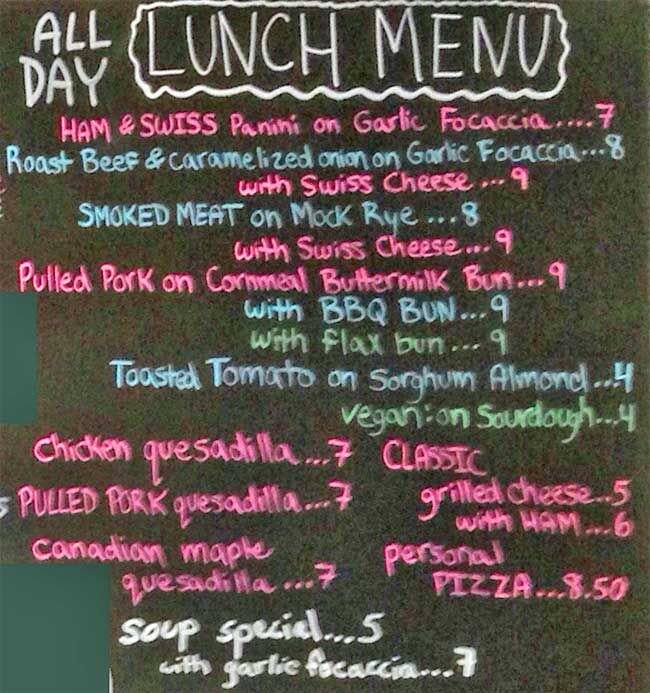 ALL DAY LUNCH MENU
HAM & SWISS Panini on Garlic Focaccia....7
Roast Beef & caramelized onion on Garlic Focaccia...8
with Swiss Cheese...9
SMOKED MEAT on Mock Rye...8
with Swiss Cheese...9
Pulled Pork on Cornmeal Buttermilk Bun...9
with BBQ BUN...9
with flax bun...9
Toasted Tomato on Sorghum Almond...4
vegan: on Sourdough...4
Chicken quesadilla...7
PULLED PORK quesadilla...7
Canadian maple
quesadilla....7
CLASSIC
grilled cheese...5
with HAM...6
personal
PIZZA...8.50
Soup special...5
with garlic focaccia...7